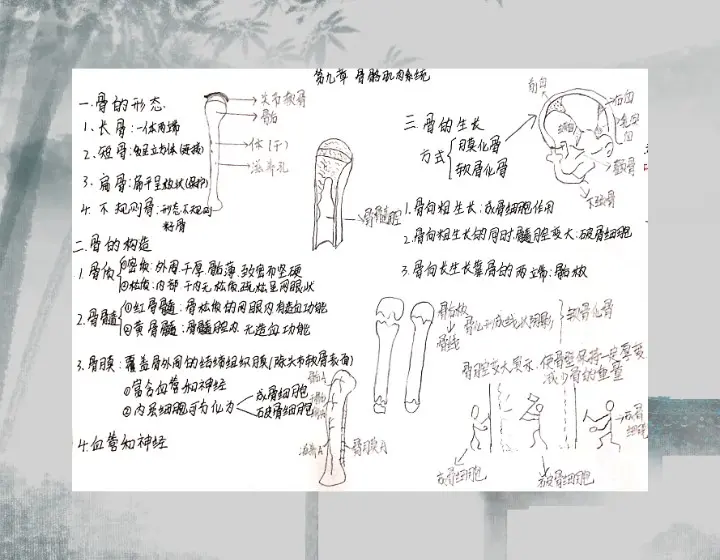 第九章 骨骼肌肉系统
一.骨的形态
1.长骨:一体两端
2.短骨:短立方体(连接)
3.扁骨:扁平呈板状(保护)
4.不规则骨:形态不规则
籽骨
关节软骨
骨骺
体(干)
滋养孔
二.骨的构造
1.骨质
①密质:外周 干厚 骺薄,致密而坚硬
②松质:内部 干内无 松质,疏松呈网眼状
2.骨髓
①红骨髓:骨松质的网眼内,有造血功能
②黄骨髓:骨髓腔内 无造血功能
3.骨膜:覆盖骨外周的结缔组织膜(除关节软骨表面)
①富含血管和神经
②内层细胞可分化为
成骨细胞
破骨细胞
4.血管和神经
骨髓腔
骨膜A
三.骨的生长
方式
膜化骨
软骨化骨
前囟
后囟
颞骨
下颌骨
1.骨向粗生长:成骨细胞作用
2.骨向粗生长的同时,髓腔变大:破骨细胞
3.骨向长生长靠骨的两端:骺板
骨骺板
骨化形成线状阴影
骺线
软骨化骨
成骨细胞
破骨细胞
成骨细胞